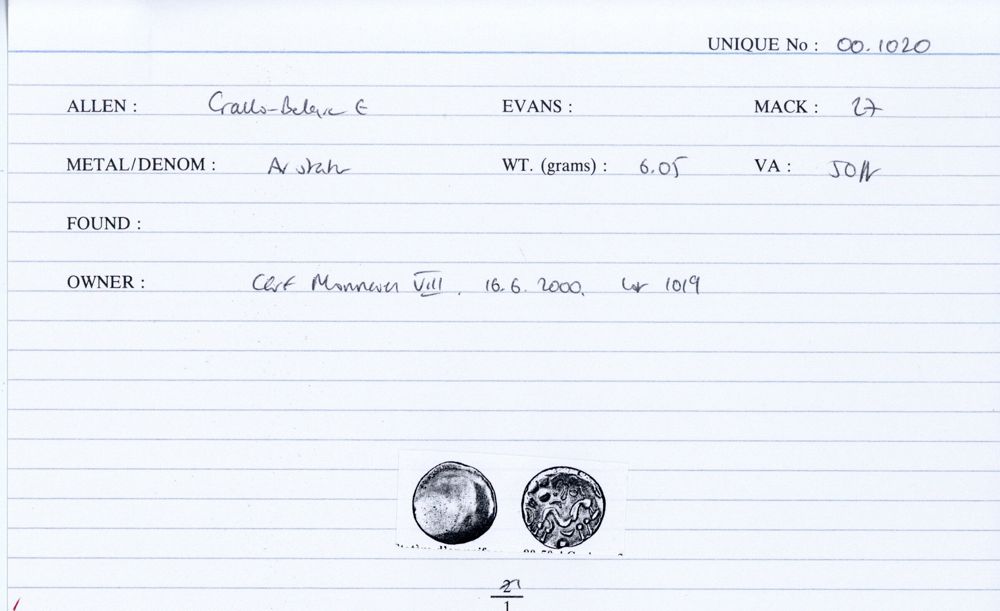 UNIQUE No : 00.1020
ALLEN : Gallo-Belgic E EVANS : MACK : 27
METAL/DENOM : AV stater WT. (grams) : 6.05 VA :
FOUND :
OWNER : VIII. 16.6.2000. 1019
1